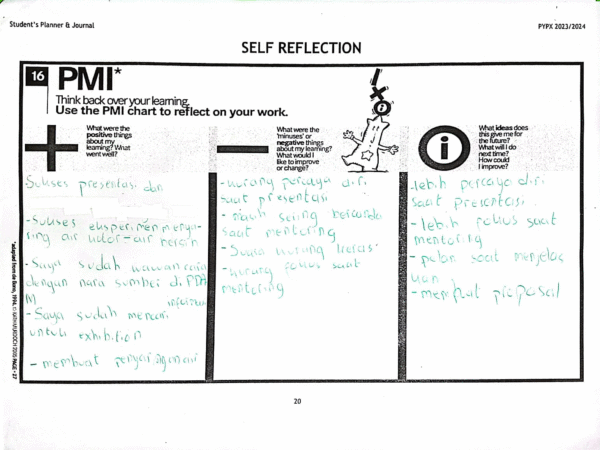 Student's Planner & Journal
PYPX 2023/2024
SELF REFLECTION
16 PMI*
Think back over your learning.
Use the PMI chart to reflect on your work.
What were the
positive things
about my
learning? What
went well?
Sukses presentasi dan
- Sukses eksperimen menya-
ring air kotor - air bersih
- Saya sudah wawancara
dengan nara sumber di PDA
M
informasi
- Saya sudah mencari
untuk exhibition
- membuat penyaringan air
What were the
'minuses' or
negative things
about my learning?
What would I
like to improve
or change?
- kurang percaya diri
saat presentasi
- masih sering bercanda
saat mentoring
- Suara kurang keras
- kurang fokus saat
mentoring
What ideas does
this give me for
the future?
What will I do
next time?
How could
I improve?
- lebih percaya diri
saat presentasi.
- lebih fokus saat
mentoring
- pelan saat menjelas
kan
- membuat proposal
20